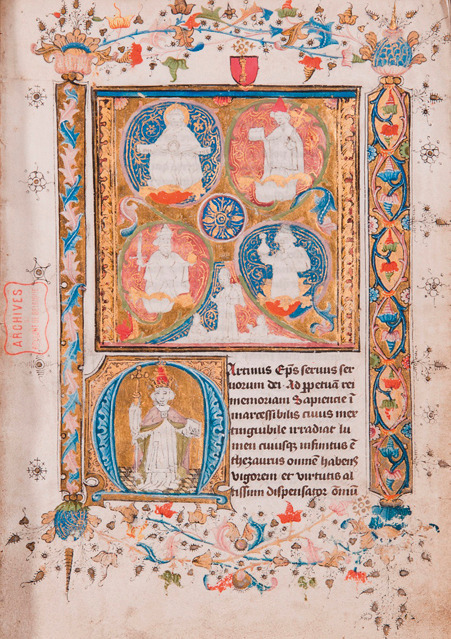 ARCHIVES
Martinus Ep̅s seruus ser
uorum dei · Ad p̱petuā rei
memoriam Sapiencie ī
marcessibilis cuius iner
tinguibile irradiat lu
men cuiusq̨ infinitus ē
thezaurus omnē habens
vigorem et virtutis al
tissim dispensator om̄iū